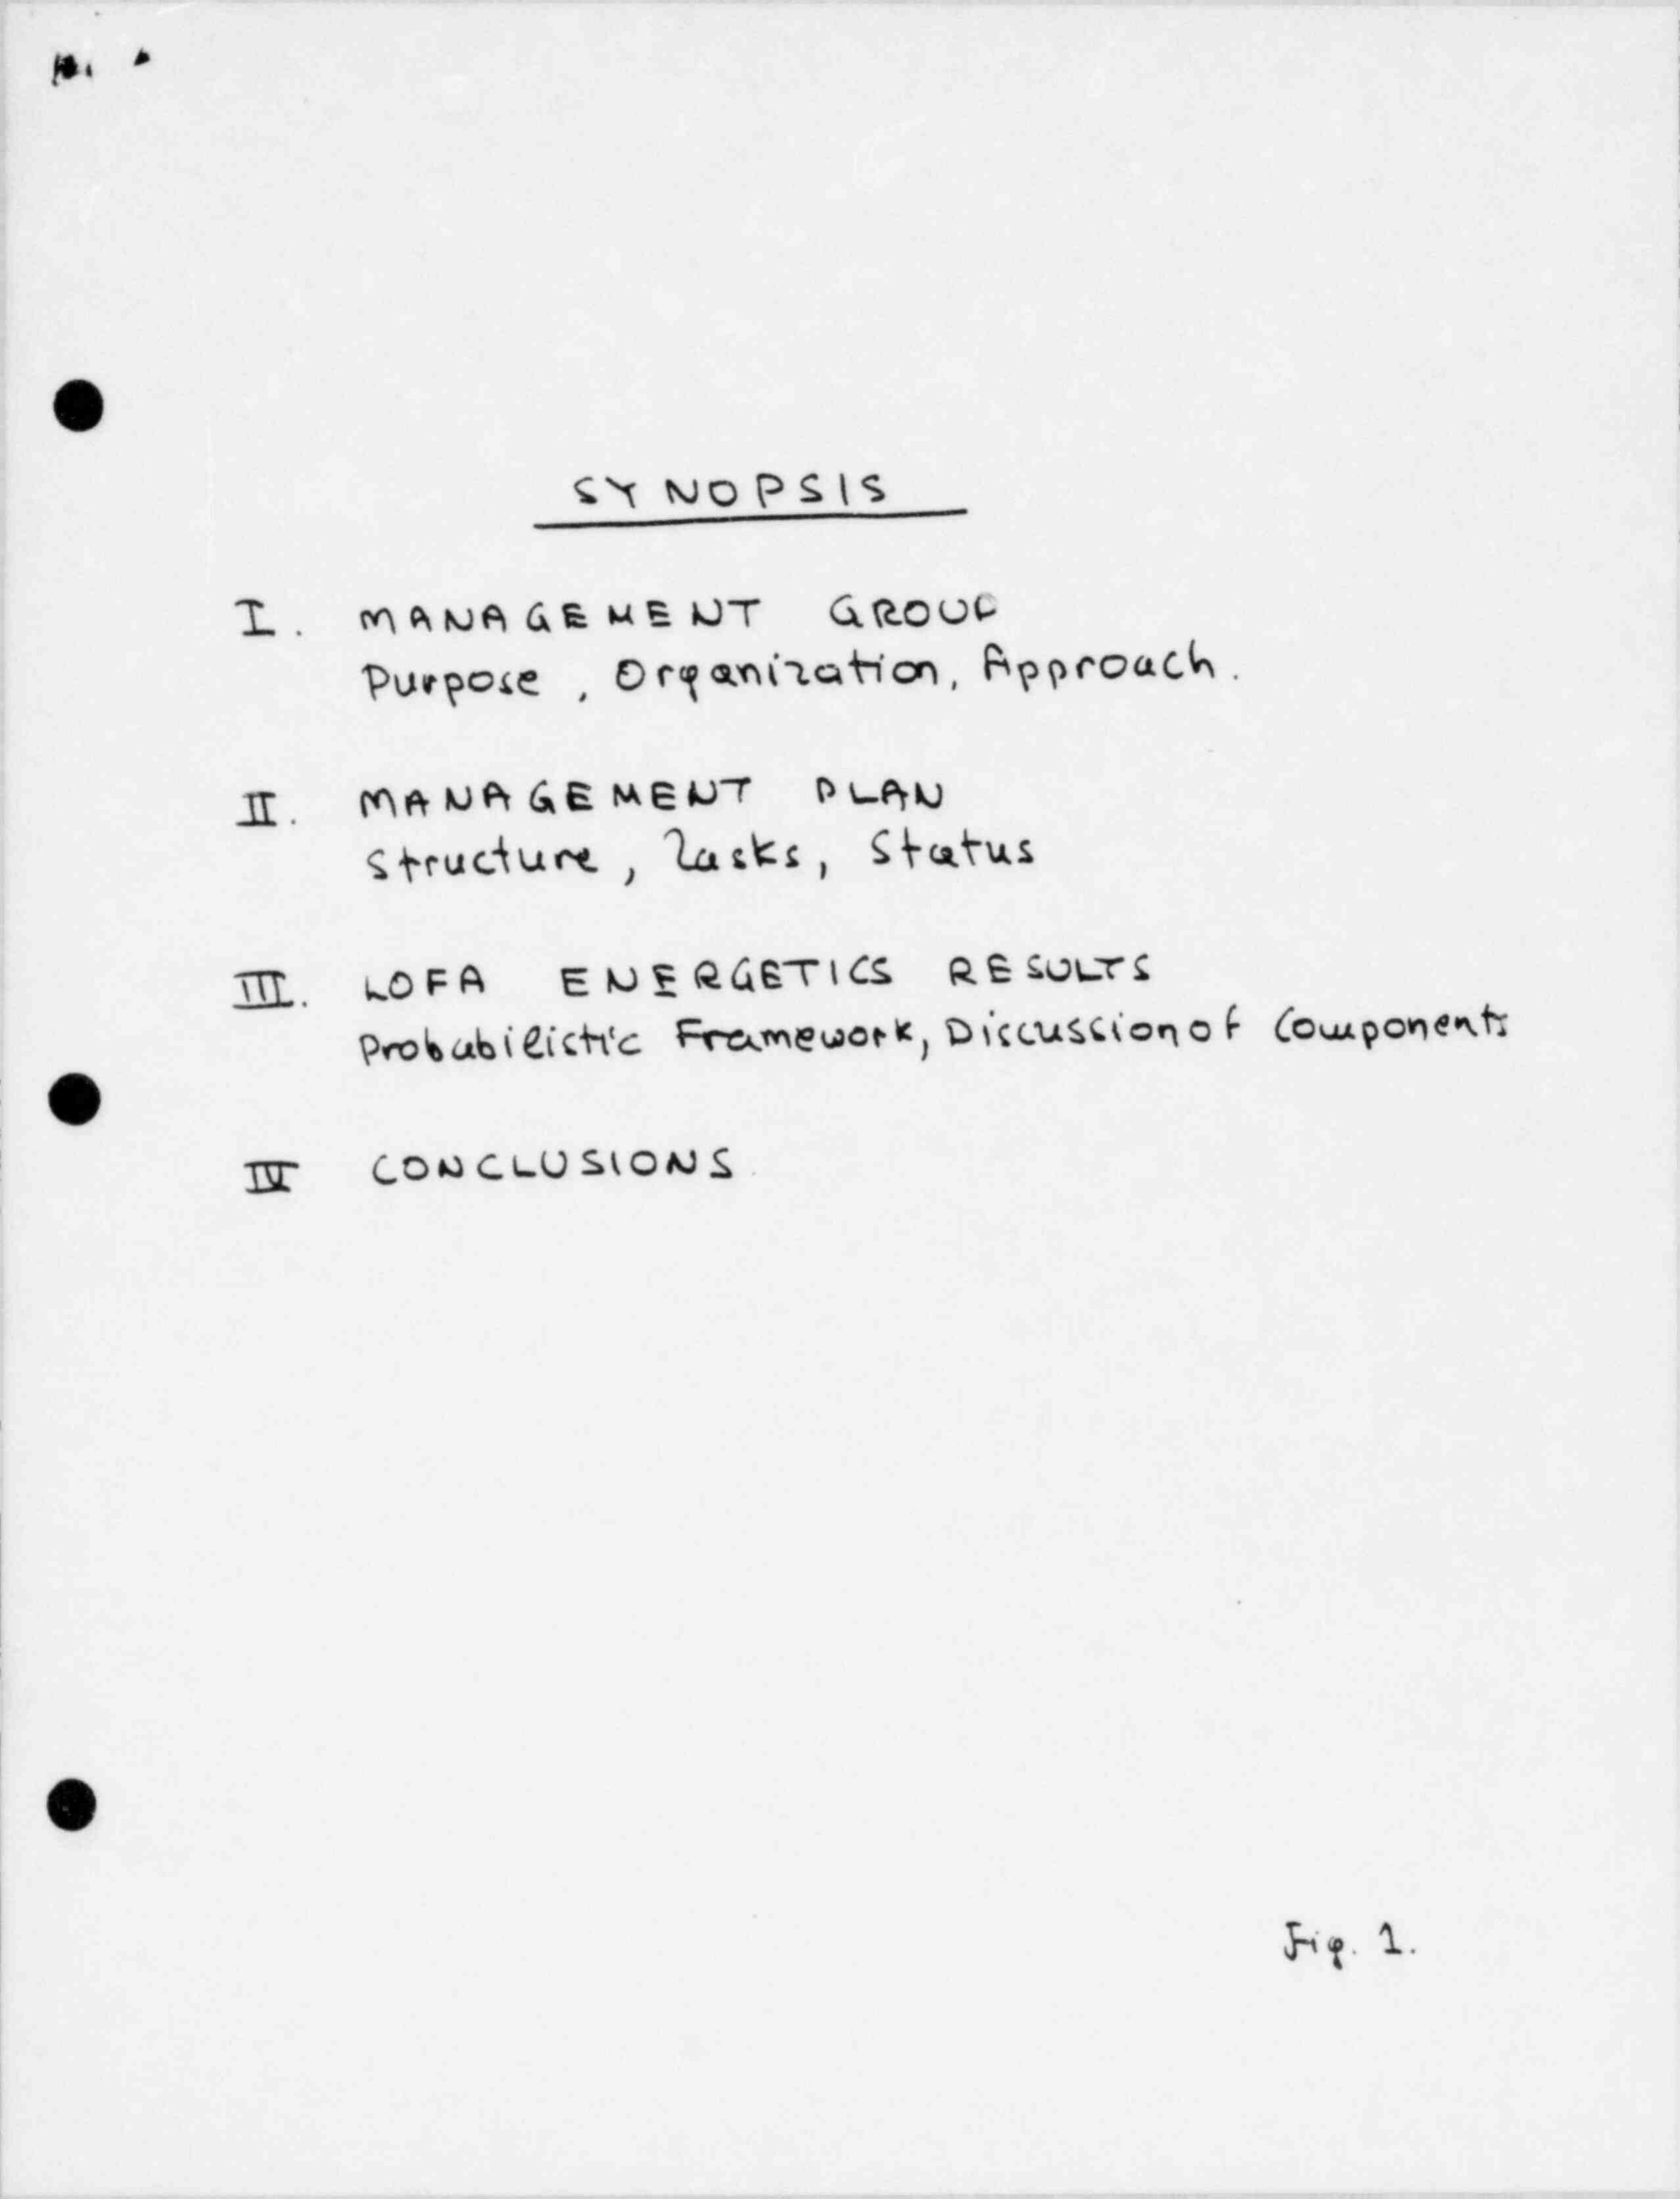 SYNOPSIS
I. MANAGEMENT GROUP
Purpose, Organization, Approach.
II. MANAGEMENT PLAN
Structure, Tasks, Status
III. LOFA ENERGETICS RESULTS
Probabilistic Framework, Discussion of Components
IV CONCLUSIONS
Fig. 1.